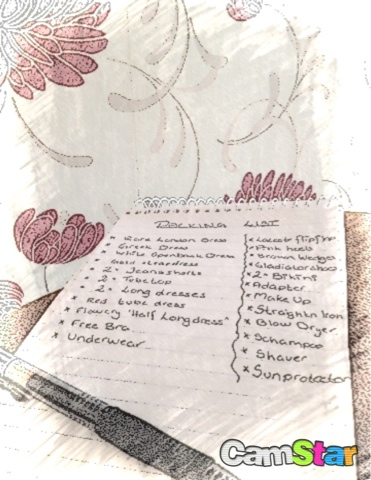 PACKING LIST
* Rare London Dress
* Greek Dress
* White Openback Dress
* Gold
* 2x Jeansshorts
* 2x Tubetop
* 2x Long dresses
* Red tube dress
* Flowery "Half Longdress"
* Free Bra
* Underwear
* flipflop
* Pink heels
* Brown Wedges
* Gladiatorshoes
* 2x Bikinis
* Adapter
* Make Up
* Straightn Iron
* Blow Dryer
* Schampoo
* Shaver
* Sunprotector
CamStar